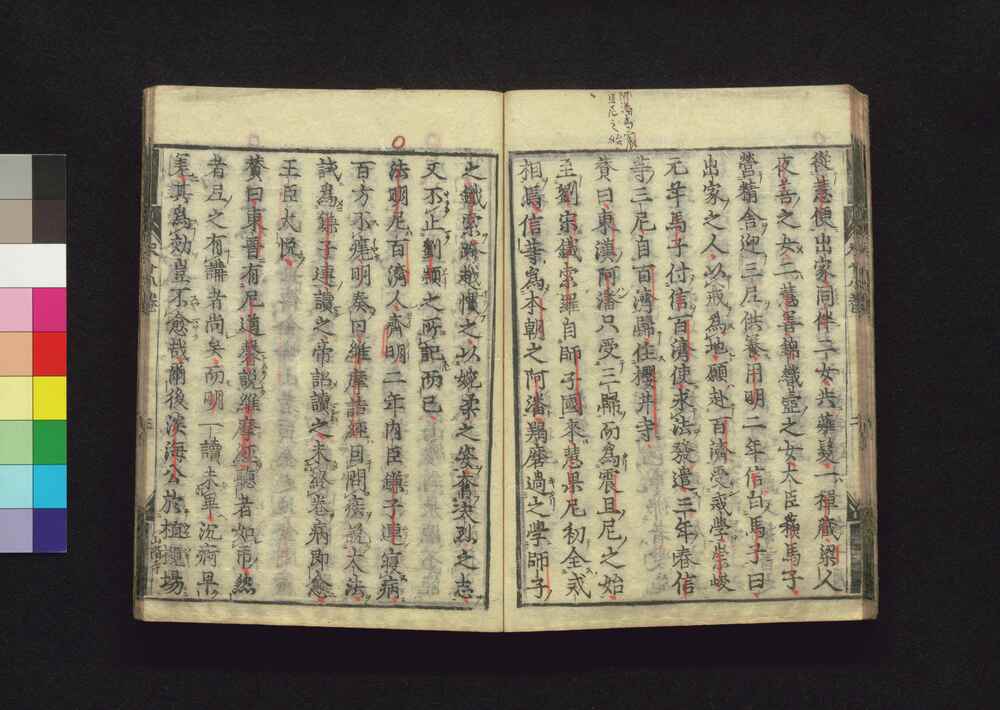 從慧便出家同伴二女共薙髮一禪藏漢人
夜善之女二慧善錦織壺之女大臣蘇馬子
營精舍迎三尼供養用明二年信白馬子曰
出家之人以戒為地願赴百濟受戒學崇峻
元年馬子付信百濟使求法發遣三年春信
等三尼自百濟歸住櫻井寺
賛曰東漢阿潘只受三歸而為震旦尼之始
至劉宋鐵索羅自師子國來慧果尼初全戒
相焉信等為本朝之阿潘羯磨過之學師子
之鐵索路越懼之以婉柔之姿奮決烈之志
又不止劉潁之所記而已
法明尼百濟人齊明二年内臣鎌子連寢病
百方不瘥明奏曰維摩詰經因問疾說大法
試為鎌子連讀之帝詔讀之未終卷病即愈
王臣大悅
賛曰東晉有尼道馨說維摩經聽者如市然
者尼之有講者尚矣而明一讀未畢沉痾早
痊其為効豈不愈哉爾後淡海公於植槻場